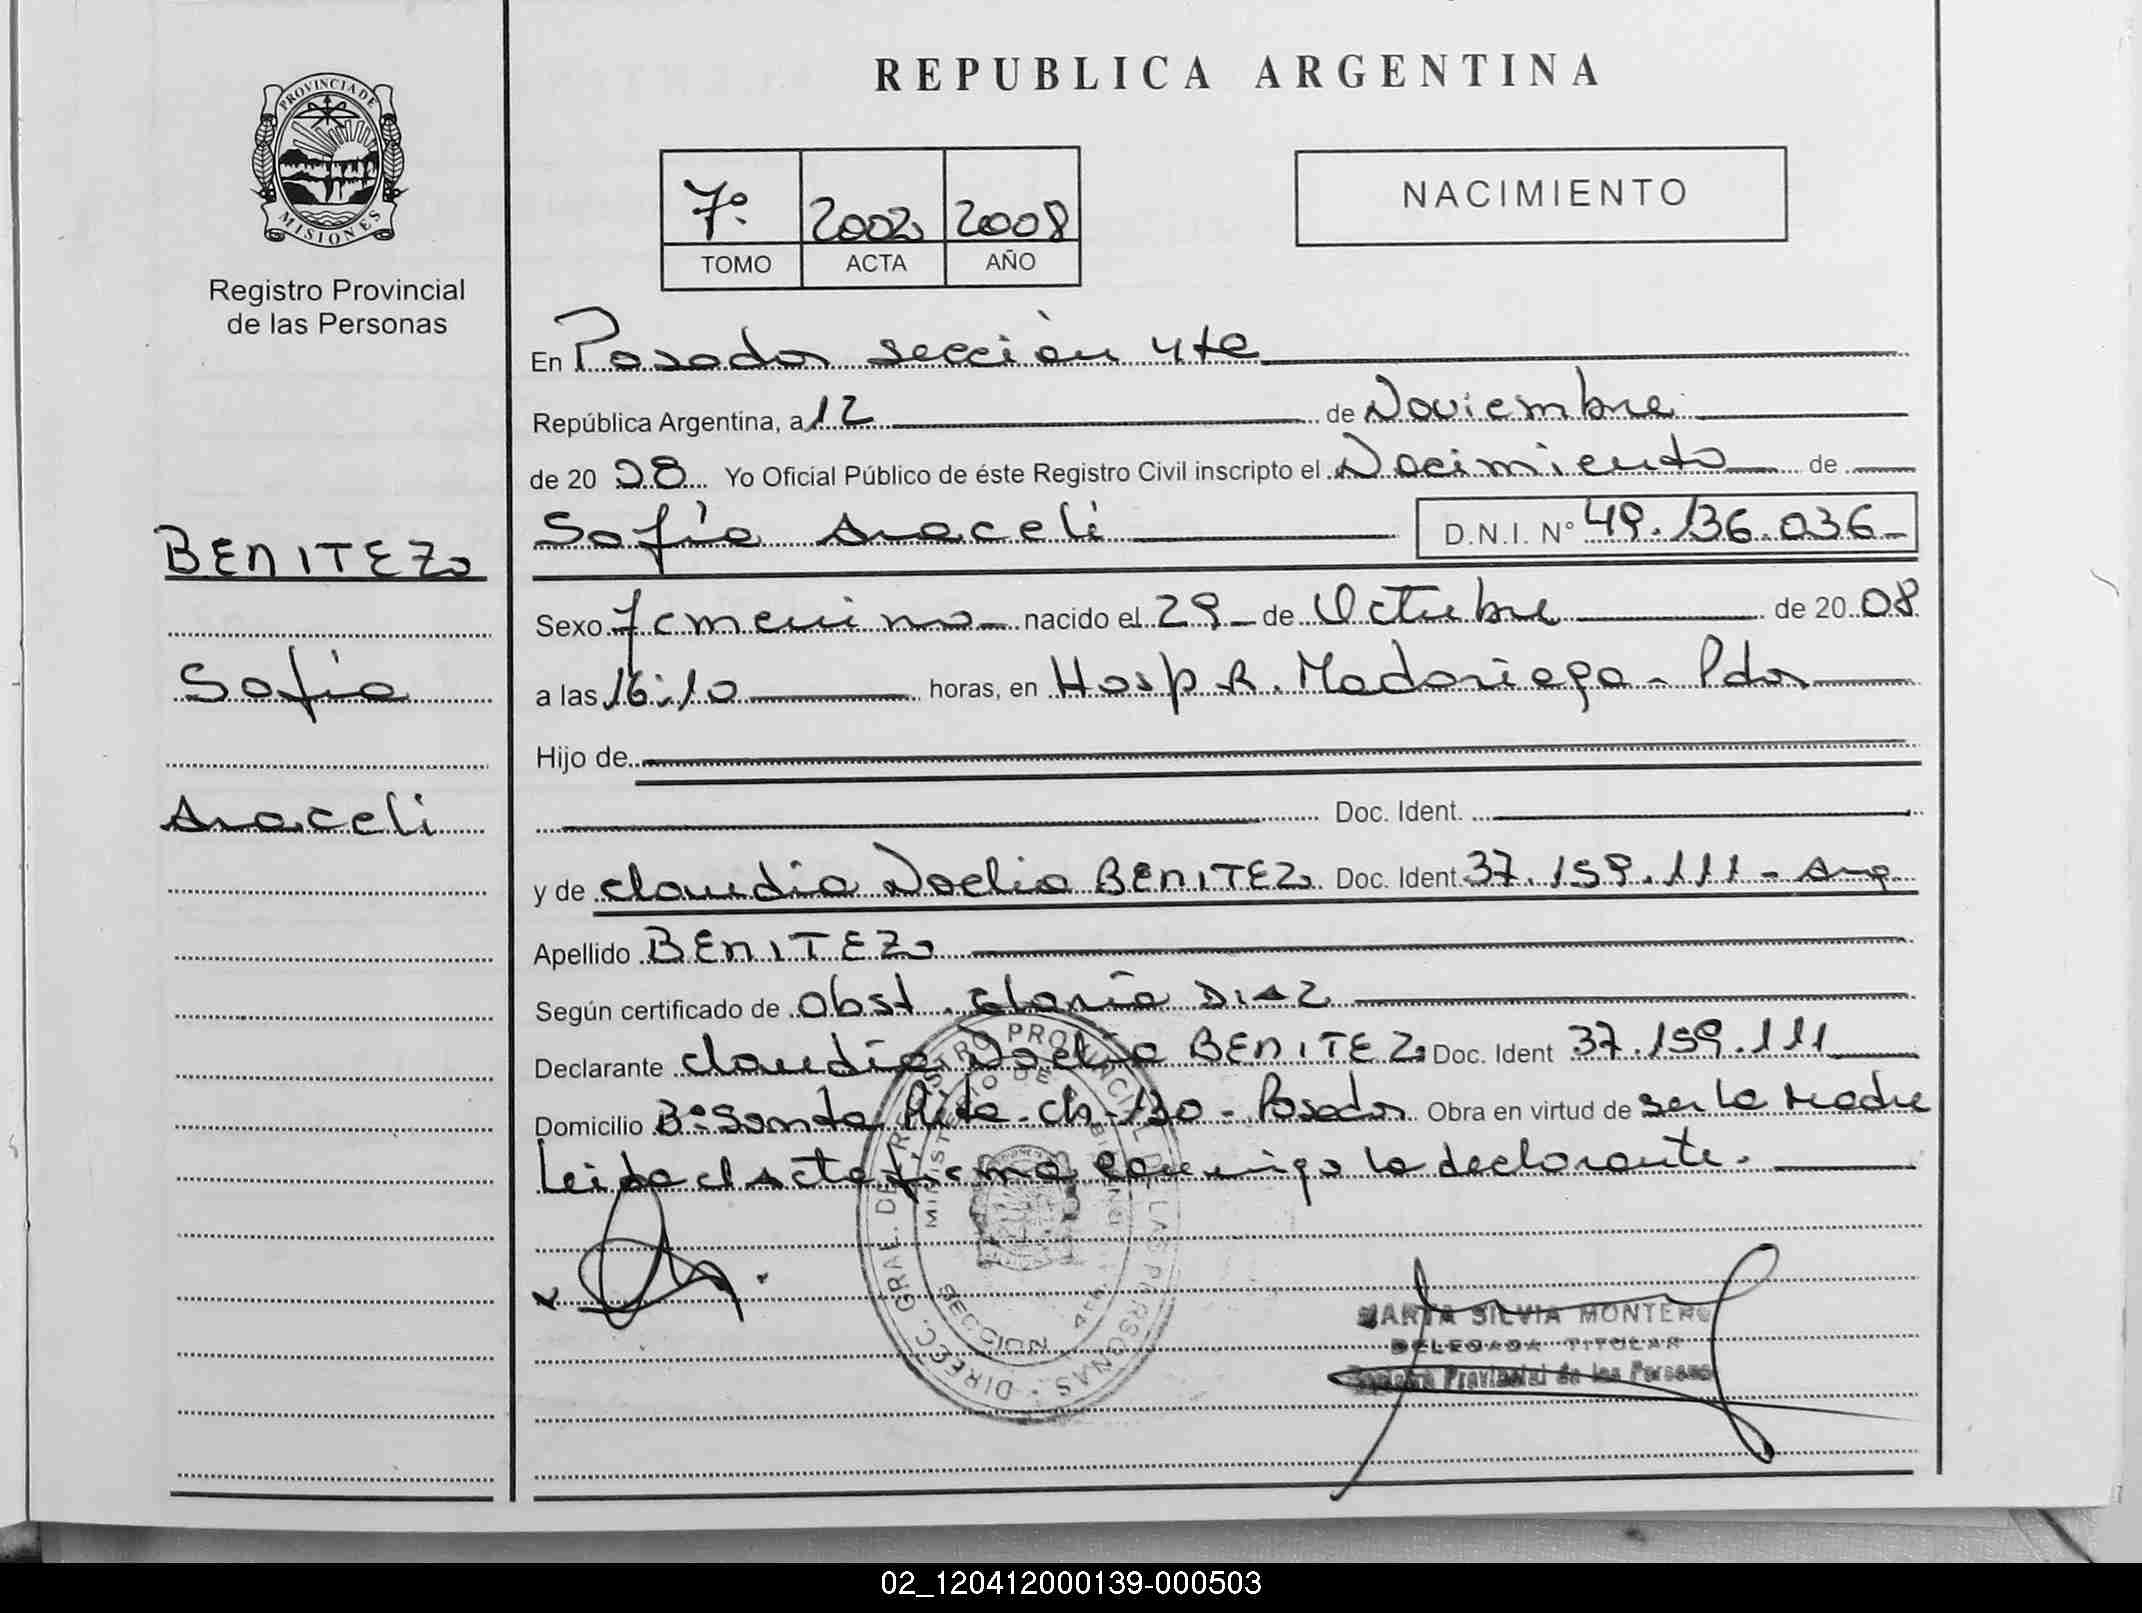 REPUBLICA ARGENTINA
PROVINCIA DE
MISIONES
Registro Provincial
de las Personas
7º 2002 2008
TOMO ACTA AÑO
NACIMIENTO
En Posadas sección 4ta
República Argentina, a 12 de Noviembre
de 20 08 Yo Oficial Público de éste Registro Civil inscripto el Nacimiento de
Sofía Araceli D.N.I. Nº 49.136.036
BENITEZ
Sofía
Araceli
Sexo femenino nacido el 29 de Octubre de 20 08
a las 16:10 horas, en Hosp R. Madariaga - Pdas
Hijo de
Doc. Ident.
y de Claudia Noelia BENITEZ Doc. Ident. 37.159.111 - Arg
Apellido BENITEZ
Según certificado de Obst. Gloria DIAZ
Declarante Claudia Noelia BENITEZ Doc. Ident 37.159.111
Domicilio Bº Santa Rita - Ch-130 - Posadas Obra en virtud de ser la Madre
Leida el acta firma conmigo la declarante.
DIREC. GRAL. DE REGISTRO PROVINCIAL DE LAS PERSONAS
SECCION 4ta
MARTA SILVIA MONTERO
DELEGADA TITULAR
Registro Provincial de las Personas
02_120412000139-000503